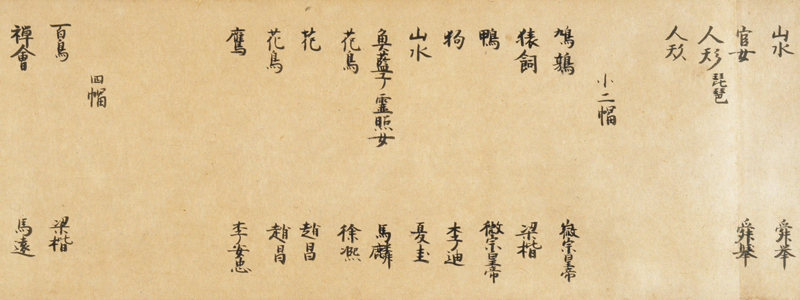 山水 舜挙
官女 舜挙
人形 琵琶
人形
小二幅
鳩 鶉 徽宗皇帝
猿飼 梁楷
鴨 徽宗皇帝
狗 李迪
山水 夏圭
魚藍子 靈照女 馬麟
花鳥 徐熙
花 趙昌
花鳥 趙昌
鷹 李安忠
四幅
百鳥 梁楷
禪會 馬遠